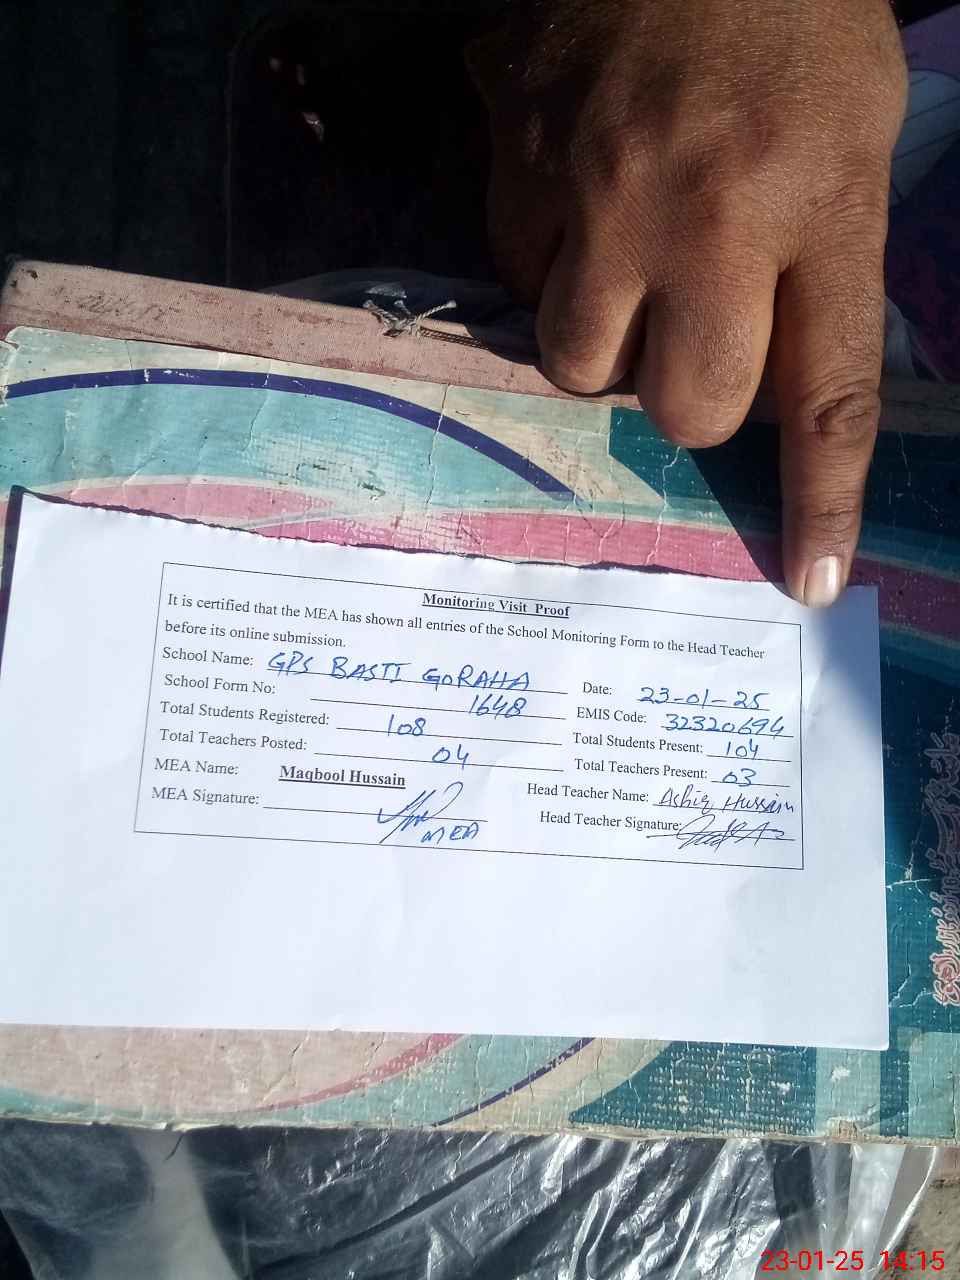 Monitoring Visit Proof
It is certified that the MEA has shown all entries of the School Monitoring Form to the Head Teacher
before its online submission.
School Name: GPS BASTI GORAHA Date: 23-01-25
School Form No: 1648 EMIS Code: 32320694
Total Students Registered: 108 Total Students Present: 104
Total Teachers Posted: 04 Total Teachers Present: 03
MEA Name: Maqbool Hussain Head Teacher Name: Ashiq Hussain
MEA Signature: MEA Head Teacher Signature:
23-01-25 14:15